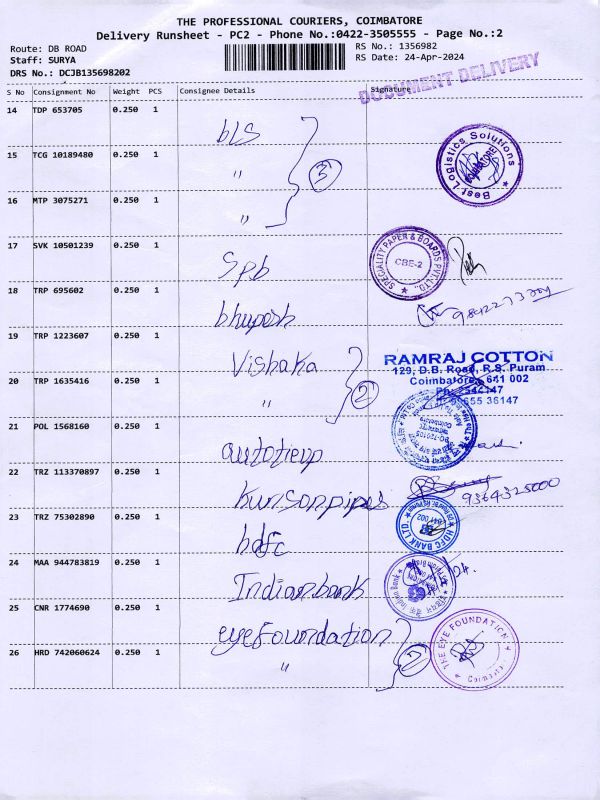 THE PROFESSIONAL COURIERS, COIMBATORE
Delivery Runsheet - PC2 - Phone No.:0422-3505555 - Page No.:2
Route: DB ROAD
Staff: SURYA
DRS No.: DCJB135698202
RS No.: 1356982
RS Date: 24-Apr-2024
DOCUMENT DELIVERY
S No Consignment No Weight PCS Consignee Details Signature
14 TDP 653705 0.250 1 bls
15 TCG 10189480 0.250 1 "
16 MTP 3075271 0.250 1 "
3
Best Logistics Solutions
17 SVK 10501239 0.250 1 Spb
SPECIALITY PAPER & BOARDS PVT.LTD.
CBE-2
18 TRP 695602 0.250 1 bhupesh
19 TRP 1223607 0.250 1 Vishaka
20 TRP 1635416 0.250 1 "
2
RAMRAJ COTTON
129, D.B. Road, R.S. Puram
Coimbatore - 641 002
36147
21 POL 1568160 0.250 1
22 TRZ 113370897 0.250 1
9364325000
23 TRZ 75302890 0.250 1 hdfc
HDFC BANK LTD.
24 MAA 944783819 0.250 1 Indianbank
Indian Bank
25 CNR 1774690 0.250 1 eyefoundation
26 HRD 742060624 0.250 1 "
THE EYE FOUNDATION